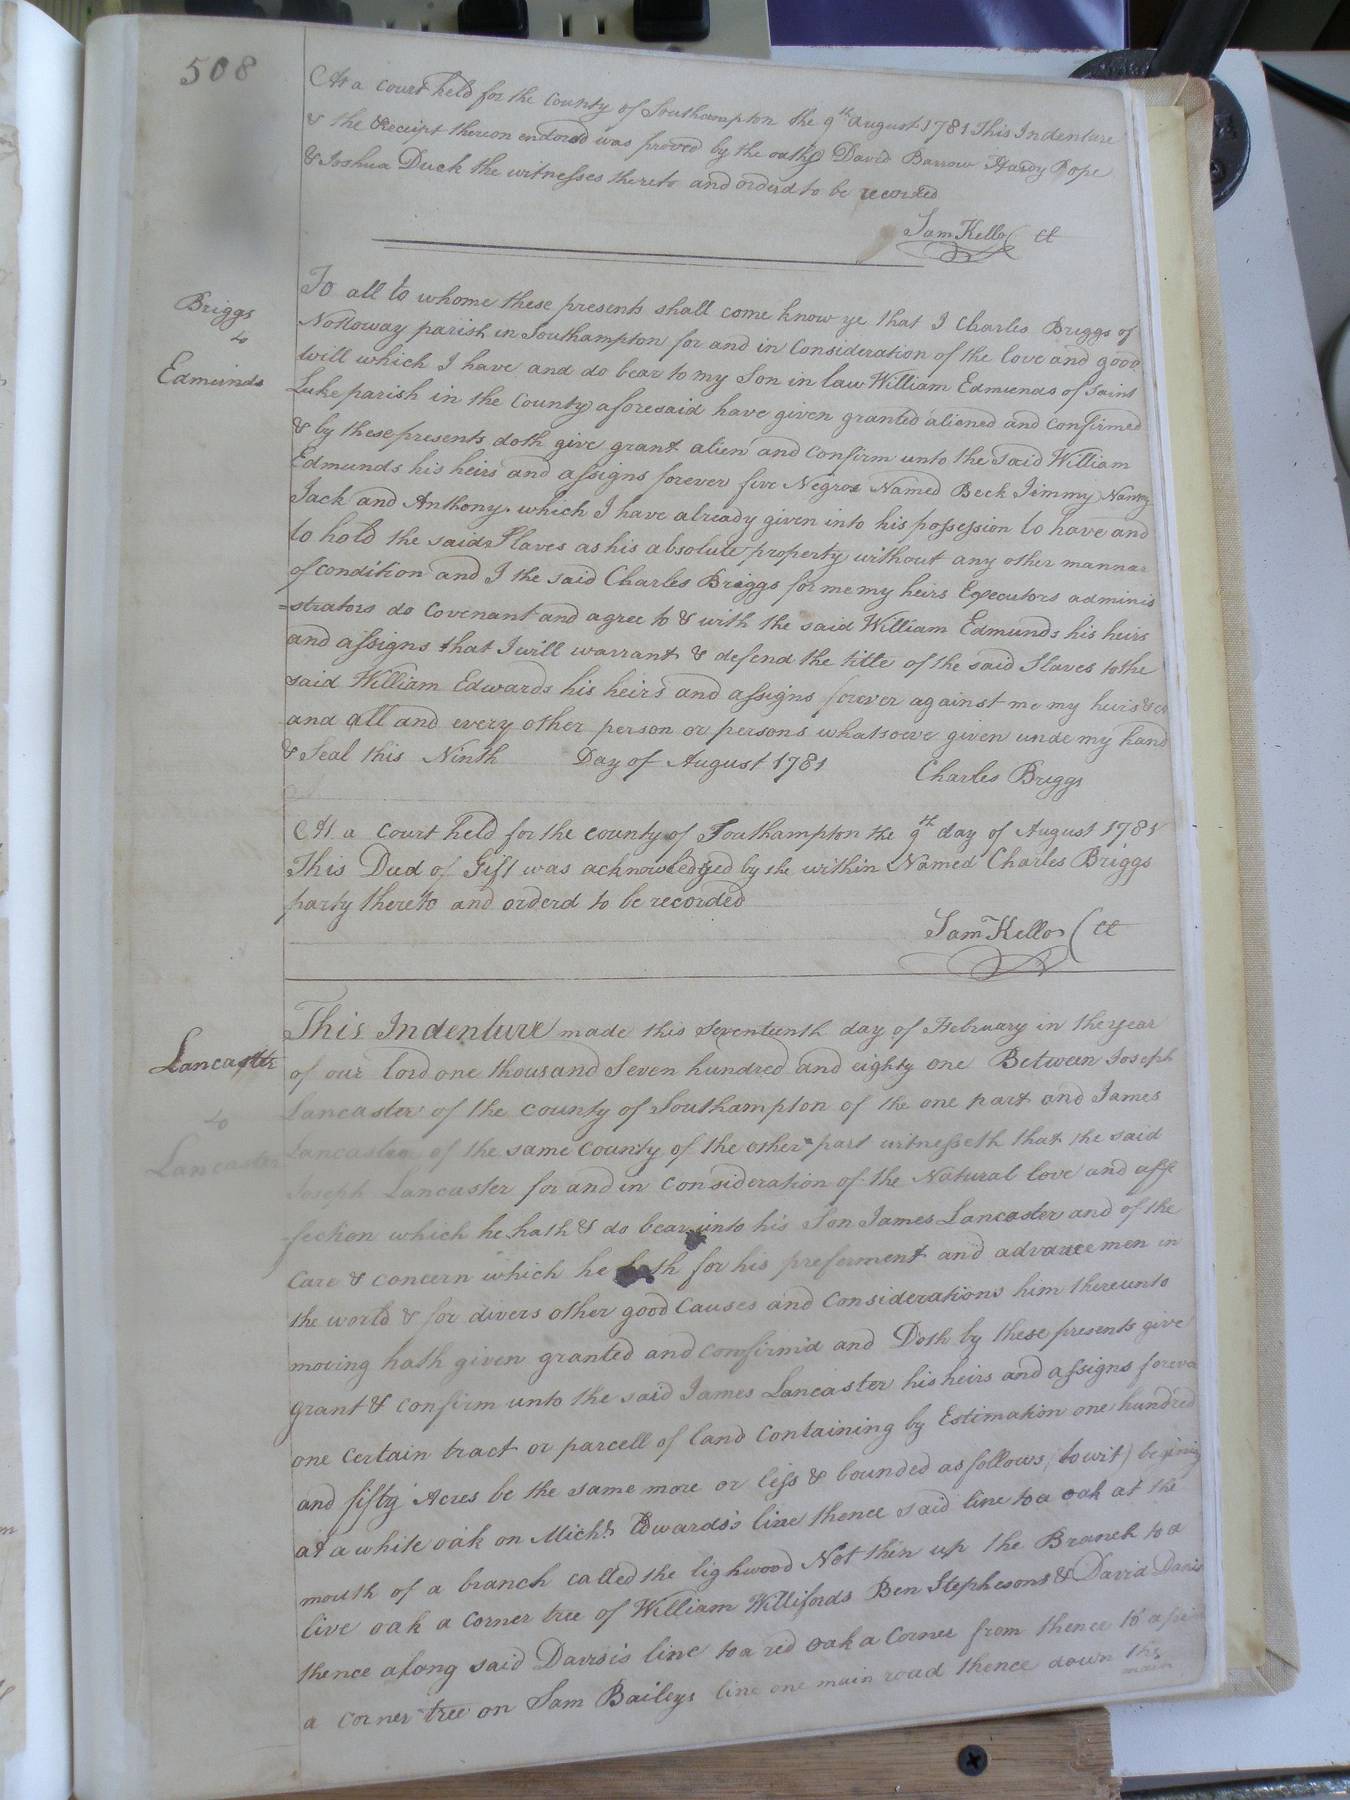 508
At a court held for the County of Southampton the 9th August 1781 This Indenture
& the Receipt thereon endorsd was proved by the oaths David Barrow Hardy Pope
& Joshua Duck the witnesses thereto and orderd to be recorded
Sam Kello Ct
Briggs
to
Edmunds
To all to whome these presents shall come know ye that I Charles Briggs of
Nottoway parish in Southampton for and in Consideration of the love and good
will which I have and do bear to my Son in law William Edmunds of Saint
Luke parish in the County aforesaid have given granted aliened and confirmed
& by these presents doth give grant alien and Confirm unto the said William
Edmunds his heirs and assigns forever five Negros Named Beck Jimmy Nanny
Jack and Anthony which I have already given into his possession to have and
to hold the said Slaves as his absolute property without any other mannar
of condition and I the said Charles Briggs for me my heirs Executors adminis
=strators do Covenant and agree to & with the said William Edmunds his heirs
and assigns that I will warrant & defend the title of the said Slaves to the
said William Edwards his heirs and assigns forever against me my heirs &c
and all and every other person or persons whatsoeve given unde my hand
& Seal this Ninth Day of August 1781 Charles Briggs
At a Court held for the county of Southampton the 9th day of August 1781
This Deed of Gift was acknowledged by the within Named Charles Briggs
party thereto and orderd to be recorded
Sam Kello Ct
Lancaster
to
Lancaster
This Indenture made this Seventeenth day of February in the year
of our lord one thousand Seven hundred and eighty one Between Joseph
Lancaster of the County of Southampton of the one part and James
Lancaster of the same County of the other part witnesseth that the said
Joseph Lancaster for and in Consideration of the Natural love and aff
-fection which he hath & do bear unto his Son James Lancaster and of the
Care & concern which he hath for his preferment and advancemen in
the world & for divers other good Causes and Considerations him thereunto
moving hath given granted and confirmd and Doth by these presents give
grant & confirm unto the said James Lancaster his heirs and assigns forever
one certain tract or parcell of land Containing by Estimation one hundred
and fifty Acres be the same more or less & bounded as follows (towit) begining
at a white oak on Michl Edwards's line thence said line to a oak at the
mouth of a branch called the lighwood Not then up the Branch to a
live oak a corner tree of William Willifords Ben Stephesons & David Davis
thence along said Davis's line to a red oak a Corner from thence to a
a corner tree on Sam Baileys line one main road thence down the
main